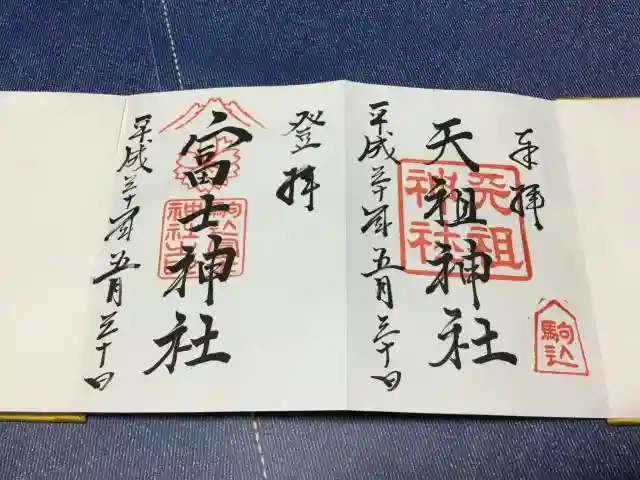 奉拝
天祖神社
天祖
神社
駒込
平成三十年五月三十日
登拝
富士神社
平成三十年五月三十日